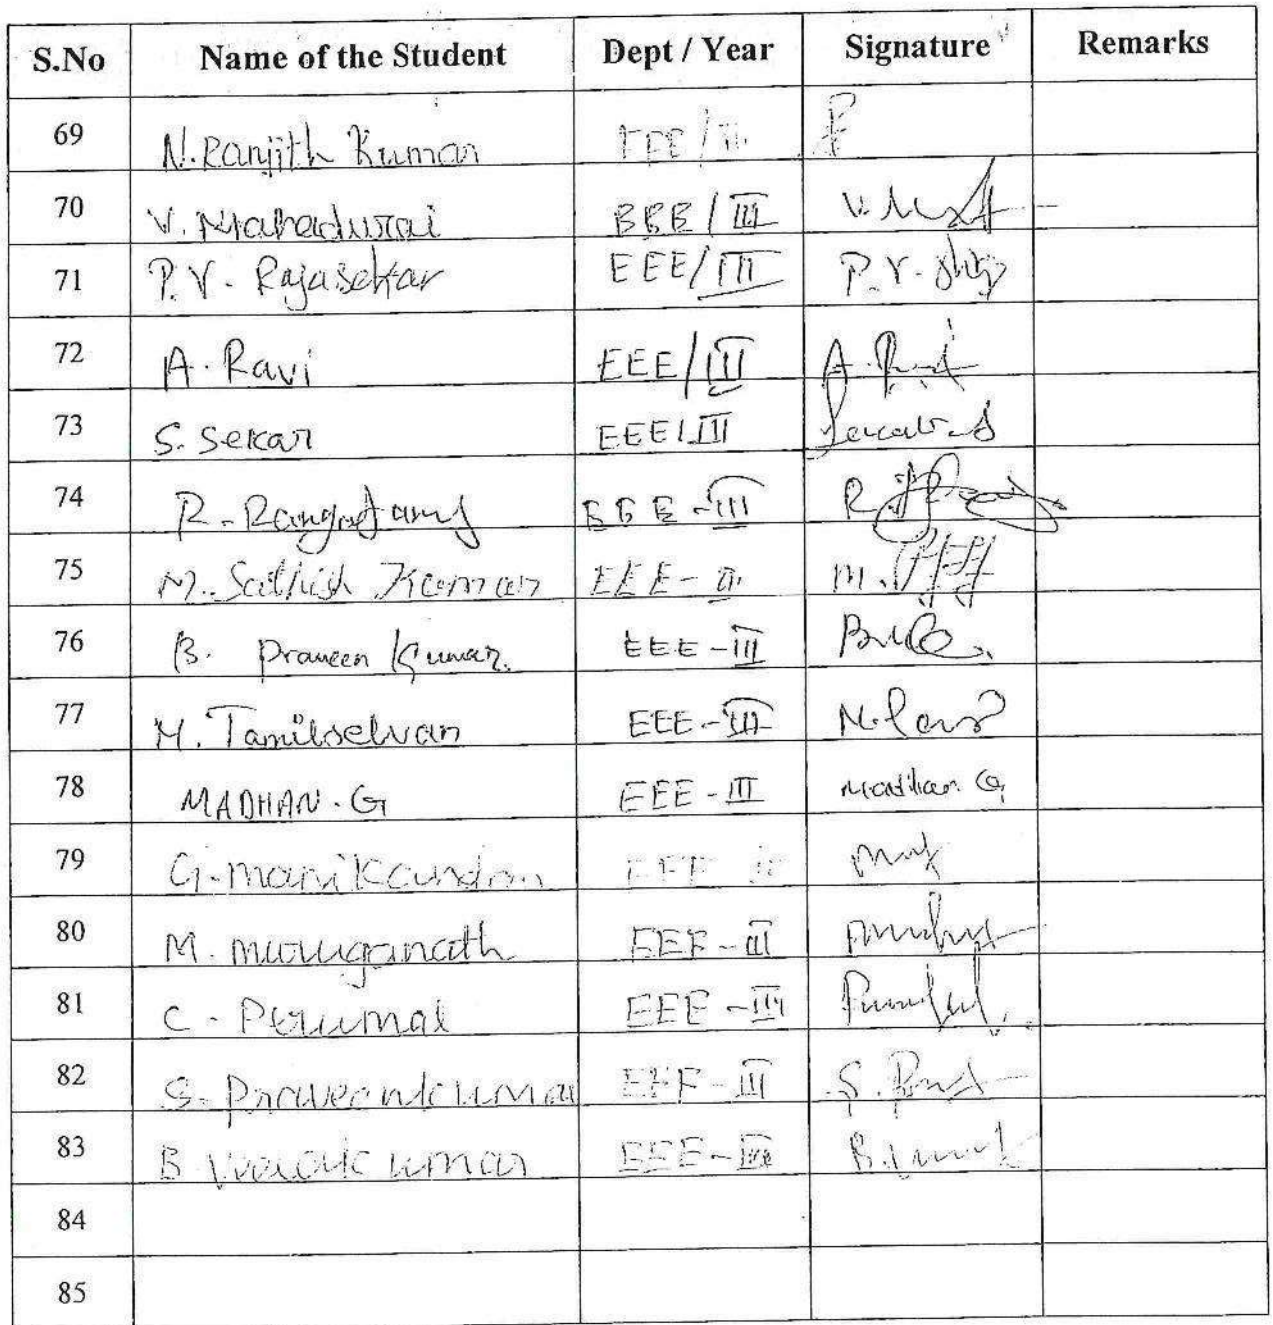 S.No Name of the Student Dept / Year Signature Remarks
69 N. Ranjith Kumar EEE /
70 V. Mahadurai EEE / III V.
71 P. V. Rajasekar EEE/III P. V.
72 A. Ravi EEE/III A.
73 S. Sekar EEE/III
74 R. Rangasamy EEE-III R.
75 M. Sathish Kumar EEE- M.
76 B. Praveen Kumar. EEE-III
77 M. Tamilselvan EEE-III M.
78 MADHAN. G EEE-III Madhan G
79 G. manikandan EEE
80 M. muruganath EEE-III
81 C. Perumal EEE-III
82 S. Praveenkumar EEE-III S.
83 B. kumar EEE-III B.
84
85